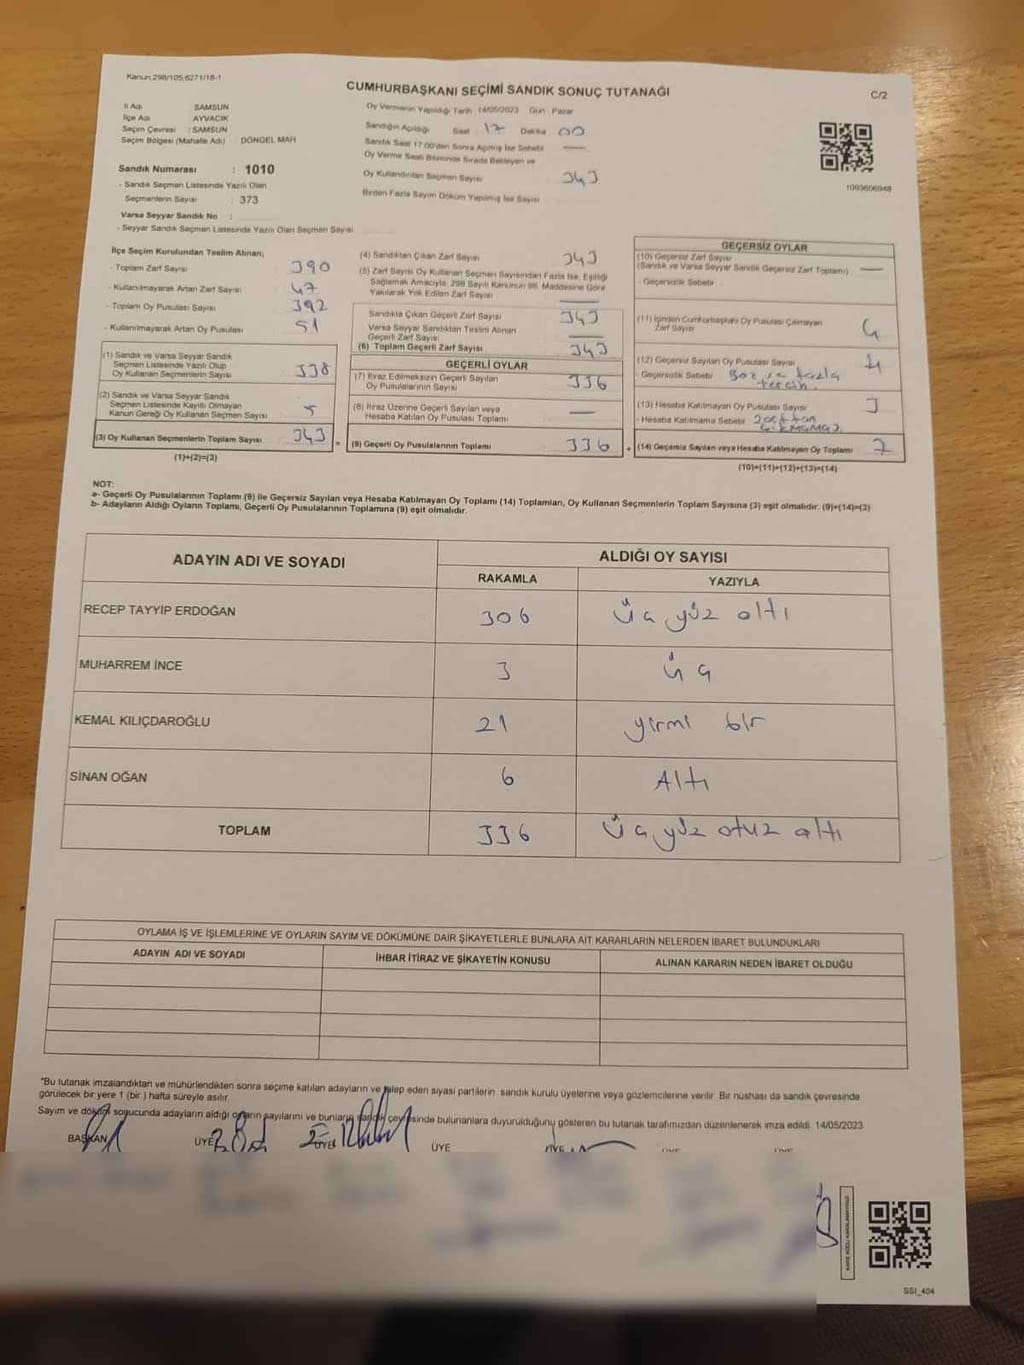 Kanun:298/105,6271/18-1
CUMHURBAŞKANI SEÇİMİ SANDIK SONUÇ TUTANAĞI
C/2
İl Adı SAMSUN
İlçe Adı AYVACIK
Seçim Çevresi : SAMSUN
Seçim Bölgesi (Mahalle Adı) DÖNGEL MAH
Sandık Numarası : 1010
- Sandık Seçmen Listesinde Yazılı Olan
Seçmenlerin Sayısı : 373
Varsa Seyyar Sandık No :
- Seyyar Sandık Seçmen Listesinde Yazılı Olan Seçmen Sayısı
Oy Vermenin Yapıldığı Tarih 14/05/2023 Gün : Pazar
Sandığın Açıldığı Saat : 17 Dakika 00
Sandık Saat 17:00'den Sonra Açılmış İse Sebebi —
Oy Verme Saati Bitiminde Sırada Bekleyen ve
Oy Kullandırılan Seçmen Sayısı 343
Birden Fazla Sayım Döküm Yapılmış İse Sayısı
1093606948
İlçe Seçim Kurulundan Teslim Alınan;
- Toplam Zarf Sayısı 390
- Kullanılmayarak Artan Zarf Sayısı 47
- Toplam Oy Pusulası Sayısı 392
- Kullanılmayarak Artan Oy Pusulası 51
(1) Sandık ve Varsa Seyyar Sandık
Seçmen Listesinde Yazılı Olup
Oy Kullanan Seçmenlerin Sayısı 338
(2) Sandık ve Varsa Seyyar Sandık
Seçmen Listesinde Kayıtlı Olmayan
Kanun Gereği Oy Kullanan Seçmen Sayısı 5
(3) Oy Kullanan Seçmenlerin Toplam Sayısı 343 =
(1)+(2)=(3)
(4) Sandıktan Çıkan Zarf Sayısı 343
(5) Zarf Sayısı Oy Kullanan Seçmen Sayısından Fazla İse, Eşitliği
Sağlamak Amacıyla, 298 Sayılı Kanunun 98. Maddesine Göre
Yakılarak Yok Edilen Zarf Sayısı —
Sandıkta Çıkan Geçerli Zarf Sayısı 343
Varsa Seyyar Sandıktan Teslim Alınan
Geçerli Zarf Sayısı —
(6) Toplam Geçerli Zarf Sayısı 343
GEÇERLİ OYLAR
(7) İtiraz Edilmeksizin Geçerli Sayılan
Oy Pusulalarının Sayısı 336
(8) İtiraz Üzerine Geçerli Sayılan veya
Hesaba Katılan Oy Pusulası Toplamı —
(9) Geçerli Oy Pusulalarının Toplamı 336 +
GEÇERSİZ OYLAR
(10) Geçersiz Zarf Sayısı
(Sandık ve Varsa Seyyar Sandık Geçersiz Zarf Toplamı) —
- Geçersizlik Sebebi
(11) İçinden Cumhurbaşkanı Oy Pusulası Çıkmayan
Zarf Sayısı
(12) Geçersiz Sayılan Oy Pusulası Sayısı 4
- Geçersizlik Sebebi fazla
tercih
(13) Hesaba Katılmayan Oy Pusulası Sayısı 3
- Hesaba Katılmama Sebebi zarftan
çıkmama
(14) Geçersiz Sayılan veya Hesaba Katılmayan Oy Toplamı 7
(10)+(11)+(12)+(13)=(14)
NOT:
a- Geçerli Oy Pusulalarının Toplamı (9) ile Geçersiz Sayılan veya Hesaba Katılmayan Oy Toplamı (14) Toplamları, Oy Kullanan Seçmenlerin Toplam Sayısına (3) eşit olmalıdır. (9)+(14)=(3)
b- Adayların Aldığı Oyların Toplamı, Geçerli Oy Pusulalarının Toplamına (9) eşit olmalıdır.
ADAYIN ADI VE SOYADI ALDIĞI OY SAYISI
RAKAMLA YAZIYLA
RECEP TAYYİP ERDOĞAN 306 üç yüz altı
MUHARREM İNCE 3 üç
KEMAL KILIÇDAROĞLU 21 yirmi bir
SİNAN OĞAN 6 Altı
TOPLAM 336 üç yüz otuz altı
OYLAMA İŞ VE İŞLEMLERİNE VE OYLARIN SAYIM VE DÖKÜMÜNE DAİR ŞİKAYETLERLE BUNLARA AİT KARARLARIN NELERDEN İBARET BULUNDUKLARI
ADAYIN ADI VE SOYADI İHBAR İTİRAZ VE ŞİKAYETİN KONUSU ALINAN KARARIN NEDEN İBARET OLDUĞU
*Bu tutanak imzalandıktan ve mühürlendikten sonra seçime katılan adayların ve talep eden siyasi partilerin sandık kurulu üyelerine veya gözlemcilerine verilir. Bir nüshası da sandık çevresinde
görülecek bir yere 1 (bir ) hafta süreyle asılır.
Sayım ve döküm sonucunda adayların aldığı oyların sayılarını ve bunların sandık çevresinde bulunanlara duyurulduğunu gösteren bu tutanak tarafımızdan düzenlenerek imza edildi. 14/05/2023
BAŞKAN ÜYE ÜYE ÜYE ÜYE
SSI_404